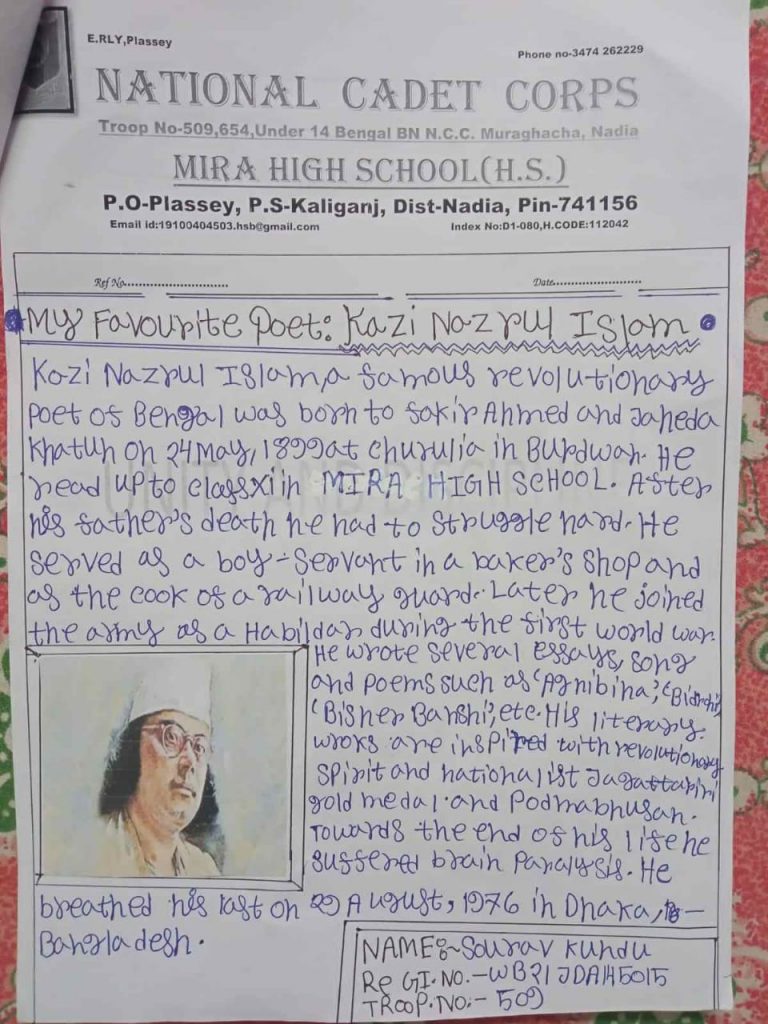 E.RLY,Plassey
Phone no-3474 262229
NATIONAL CADET CORPS
Troop No-509,654,Under 14 Bengal BN N.C.C. Muraghacha, Nadia
MIRA HIGH SCHOOL(H.S.)
P.O-Plassey, P.S-Kaliganj, Dist-Nadia, Pin-741156
Email id:19100404503.hsb@gmail.com
Index No:D1-080,H.CODE:112042
Ref No............................
Date.........................
My Favourite Poet: Kazi Nazrul Islam
Kazi Nazrul Islam, a famous revolutionary
poet of Bengal was born to fakir Ahmed and Jaheda
Khatun on 24 May, 1899 at churulia in Burdwan. He
read up to class xi in MIRA HIGH SCHOOL. After
his father's death he had to struggle hard. He
served as a boy-servant in a baker's shop and
as the cook of a railway guard. Later he joined
the army as a Habildar during the first world war.
He wrote several essays, song
and poems such as 'Agnibina',
'Bisher Banshi', etc. His literary
wroks are inspired with revolutionary
spirit and nationalist Jagattarini
gold medal. and Podmabhusan.
Towards the end of his life he
suffered brain paralysis. He
breathed his last on 29 August, 1976 in Dhaka,
Bangladesh.
UNITY AND DISCIPL
NAME:~Sourav Kundu
ReGI.NO.-WB21JDAH5015
TROOP.NO:- 509